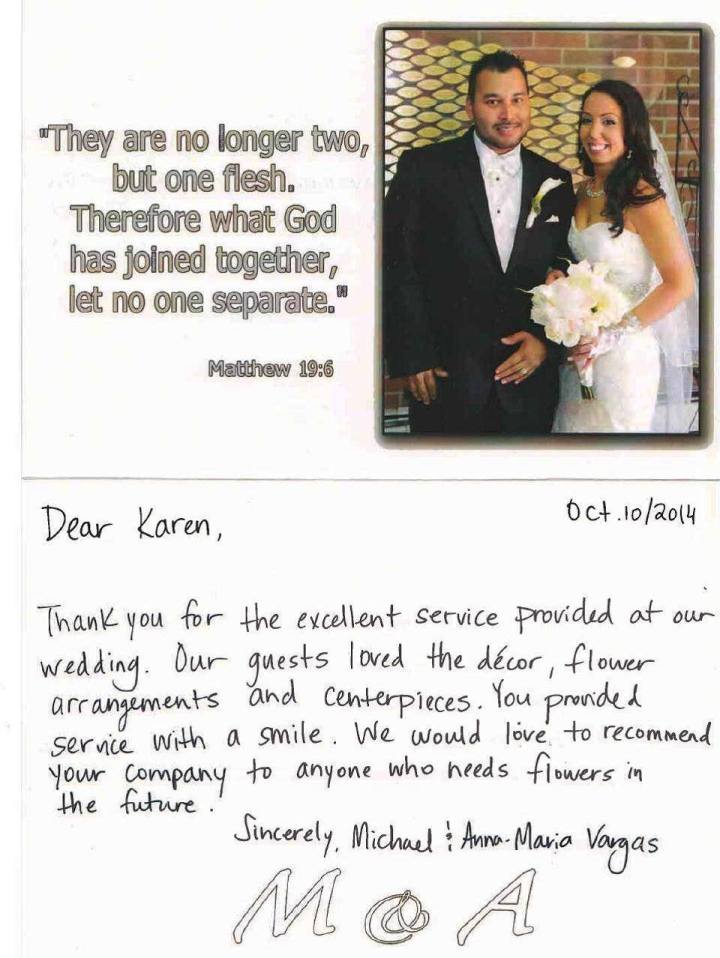 "They are no longer two,
but one flesh.
Therefore what God
has joined together,
let no one separate."
Matthew 19:6
Dear Karen,
Oct.10/2014
Thank you for the excellent service provided at our
wedding. Our guests loved the décor, flower
arrangements and centerpieces. You provided
service with a smile. We would love to recommend
your company to anyone who needs flowers in
the future.
Sincerely, Michael & Anna-Maria Vargas
M & A